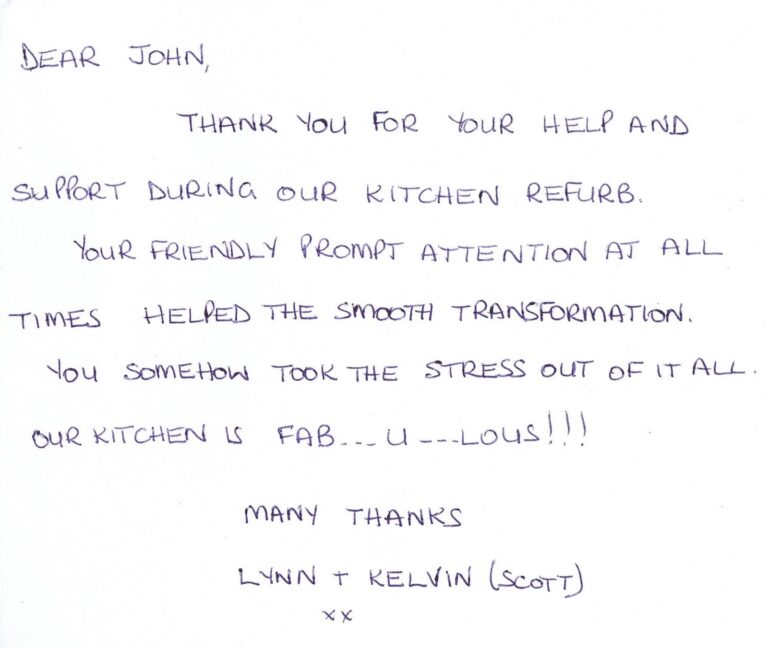 DEAR JOHN,
THANK YOU FOR YOUR HELP AND
SUPPORT DURING OUR KITCHEN REFURB.
YOUR FRIENDLY PROMPT ATTENTION AT ALL
TIMES HELPED THE SMOOTH TRANSFORMATION.
YOU SOMEHOW TOOK THE STRESS OUT OF IT ALL.
OUR KITCHEN IS FAB---U---LOUS!!!
MANY THANKS
LYNN + KELVIN (SCOTT)
xx